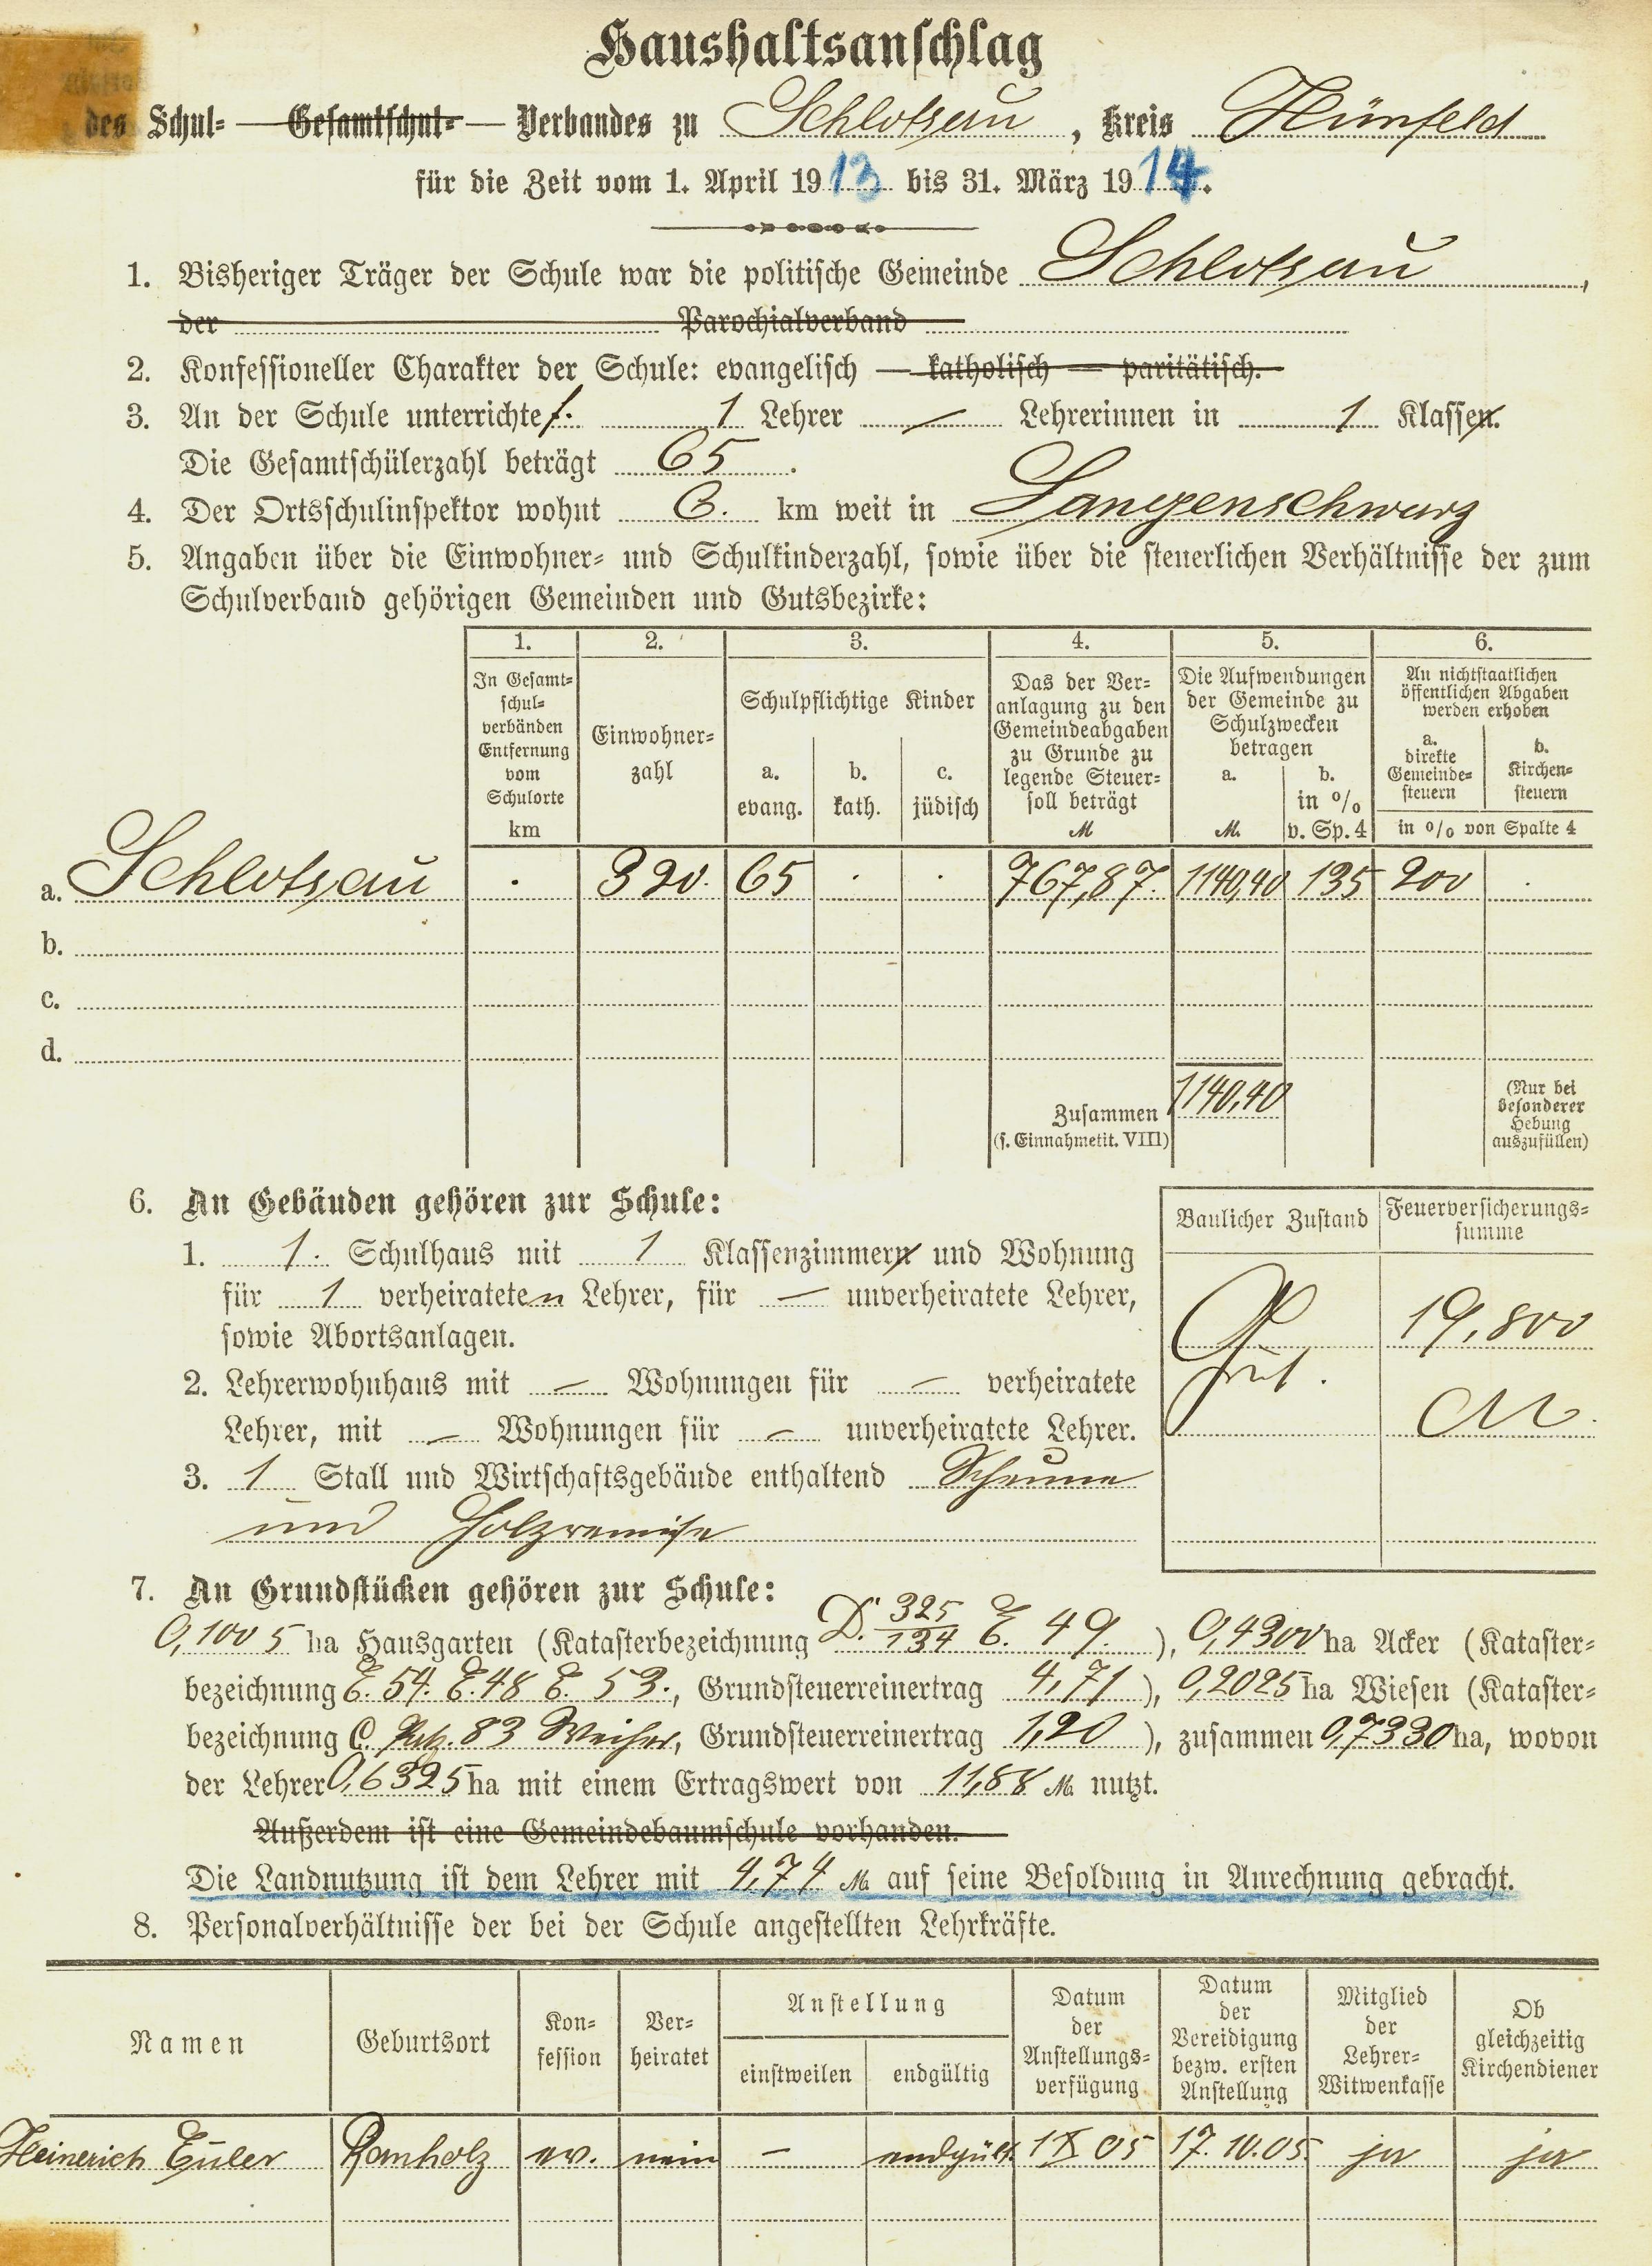 Haushaltsanschlag
des Schul- Gesamtschul- Verbandes zu Schlotzau, Kreis Hünfeld
für die Zeit vom 1. April 1913 bis 31. März 1914.
1. Bisheriger Träger der Schule war die politische Gemeinde Schlotzau,
der Parochialverband
2. Konfessioneller Charakter der Schule: evangelisch — katholisch — paritätisch.
3. An der Schule unterrichtet. 1 Lehrer — Lehrerinnen in 1 Klassen.
Die Gesamtschülerzahl beträgt 65.
4. Der Ortsschulinspektor wohnt 6. km weit in Langenschwarz
5. Angaben über die Einwohner- und Schulkinderzahl, sowie über die steuerlichen Verhältnisse der zum
Schulverband gehörigen Gemeinden und Gutsbezirke:
1. 2. 3. 4. 5. 6.
In Gesamt-
schul-
verbänden
Entfernung
vom
Schulorte
km
Einwohner-
zahl
Schulpflichtige Kinder
a. b. c.
evang. kath. jüdisch
Das der Ver-
anlagung zu den
Gemeindeabgaben
zu Grunde zu
legende Steuer-
soll beträgt
M
Die Aufwendungen
der Gemeinde zu
Schulzwecken
betragen
a. b.
in %
M. v. Sp. 4
An nichtstaatlichen
öffentlichen Abgaben
werden erhoben
a.
direkte
Gemeinde-
steuern
b.
Kirchen-
steuern
in % von Spalte 4
a. Schlotzau . 320. 65 . . 767,87. 1140,40 135 200 .
b.
c.
d.
Zusammen 1140,40
(s. Einnahmetit. VIII)
(Nur bei
besonderer
Hebung
auszufüllen)
6. An Gebäuden gehören zur Schule:
Baulicher Zustand Feuerversicherungs-
summe
1. 1. Schulhaus mit 1 Klassenzimmern und Wohnung
für 1 verheirateten Lehrer, für — unverheiratete Lehrer,
sowie Abortsanlagen.
Gut. 19,800
M.
2. Lehrerwohnhaus mit — Wohnungen für — verheiratete
Lehrer, mit — Wohnungen für — unverheiratete Lehrer.
3. 1 Stall und Wirtschaftsgebäude enthaltend Scheune
und Holzremise
7. An Grundstücken gehören zur Schule:
0,1005 ha Hausgarten (Katasterbezeichnung D. 325/134 E. 49.), 0,4300 ha Acker (Kataster-
bezeichnung E. 54. E. 48 E. 53., Grundsteuerreinertrag 4,71), 0,2025 ha Wiesen (Kataster-
bezeichnung C. 83, Grundsteuerreinertrag 1,20), zusammen 0,7330 ha, wovon
der Lehrer 0,6325 ha mit einem Ertragswert von 11,88 M nutzt.
Außerdem ist eine Gemeindebaumschule vorhanden.
Die Landnutzung ist dem Lehrer mit 4,74 M auf seine Besoldung in Anrechnung gebracht.
8. Personalverhältnisse der bei der Schule angestellten Lehrkräfte.
Namen
Geburtsort
Kon-
fession
Ver-
heiratet
Anstellung
einstweilen endgültig
Datum
der
Anstellungs-
verfügung
Datum
der
Vereidigung
bezw. ersten
Anstellung
Mitglied
der
Lehrer-
Witwenkasse
Ob
gleichzeitig
Kirchendiener
Heinrich Euler Ramholz ev. nein — endgült. 1 X 05 17. 10. 05. ja ja